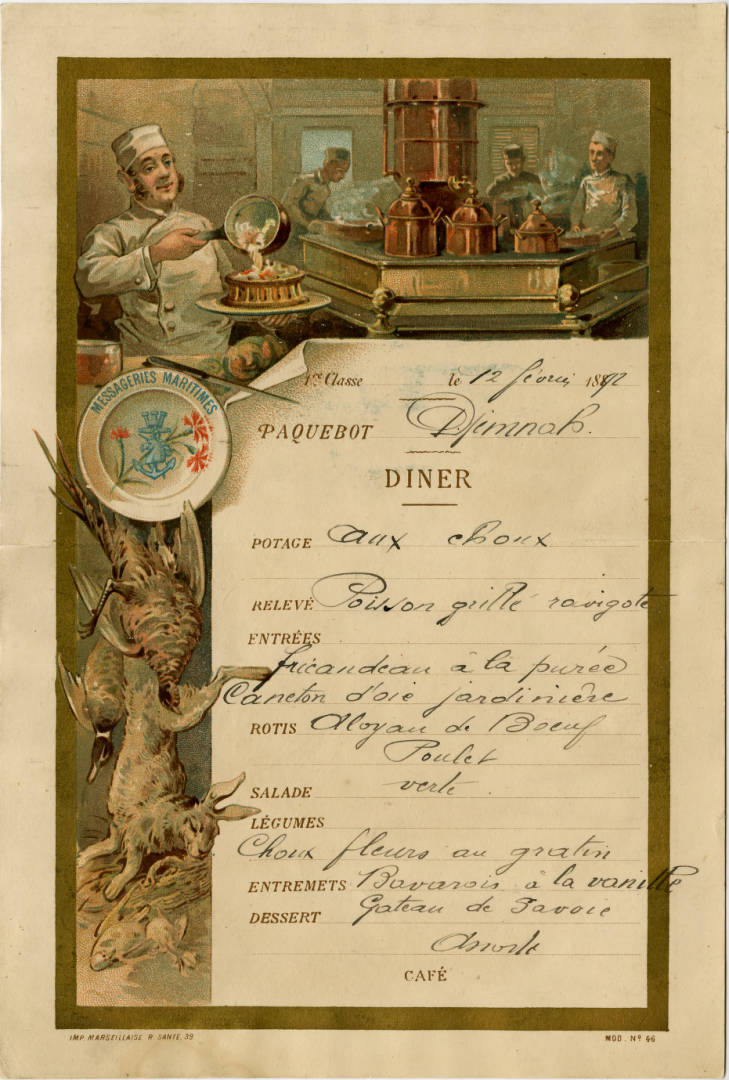 1re Classe le 12 février 1892
MESSAGERIES MARITIMES
PAQUEBOT Djemnah.
DINER
POTAGE aux choux
RELEVÉ Poisson grillé ravigote
ENTRÉES
fricandeau à la purée
Caneton d'oie jardinière
ROTIS Aloyau de Boeuf
Poulet
SALADE verte.
LÉGUMES
Choux fleurs au gratin
ENTREMETS Bavarois à la vanille
DESSERT Gateau de Savoie
Assorti
CAFÉ
IMP MARSEILLAISE R. SANTE, 39 MOD. Nº 46